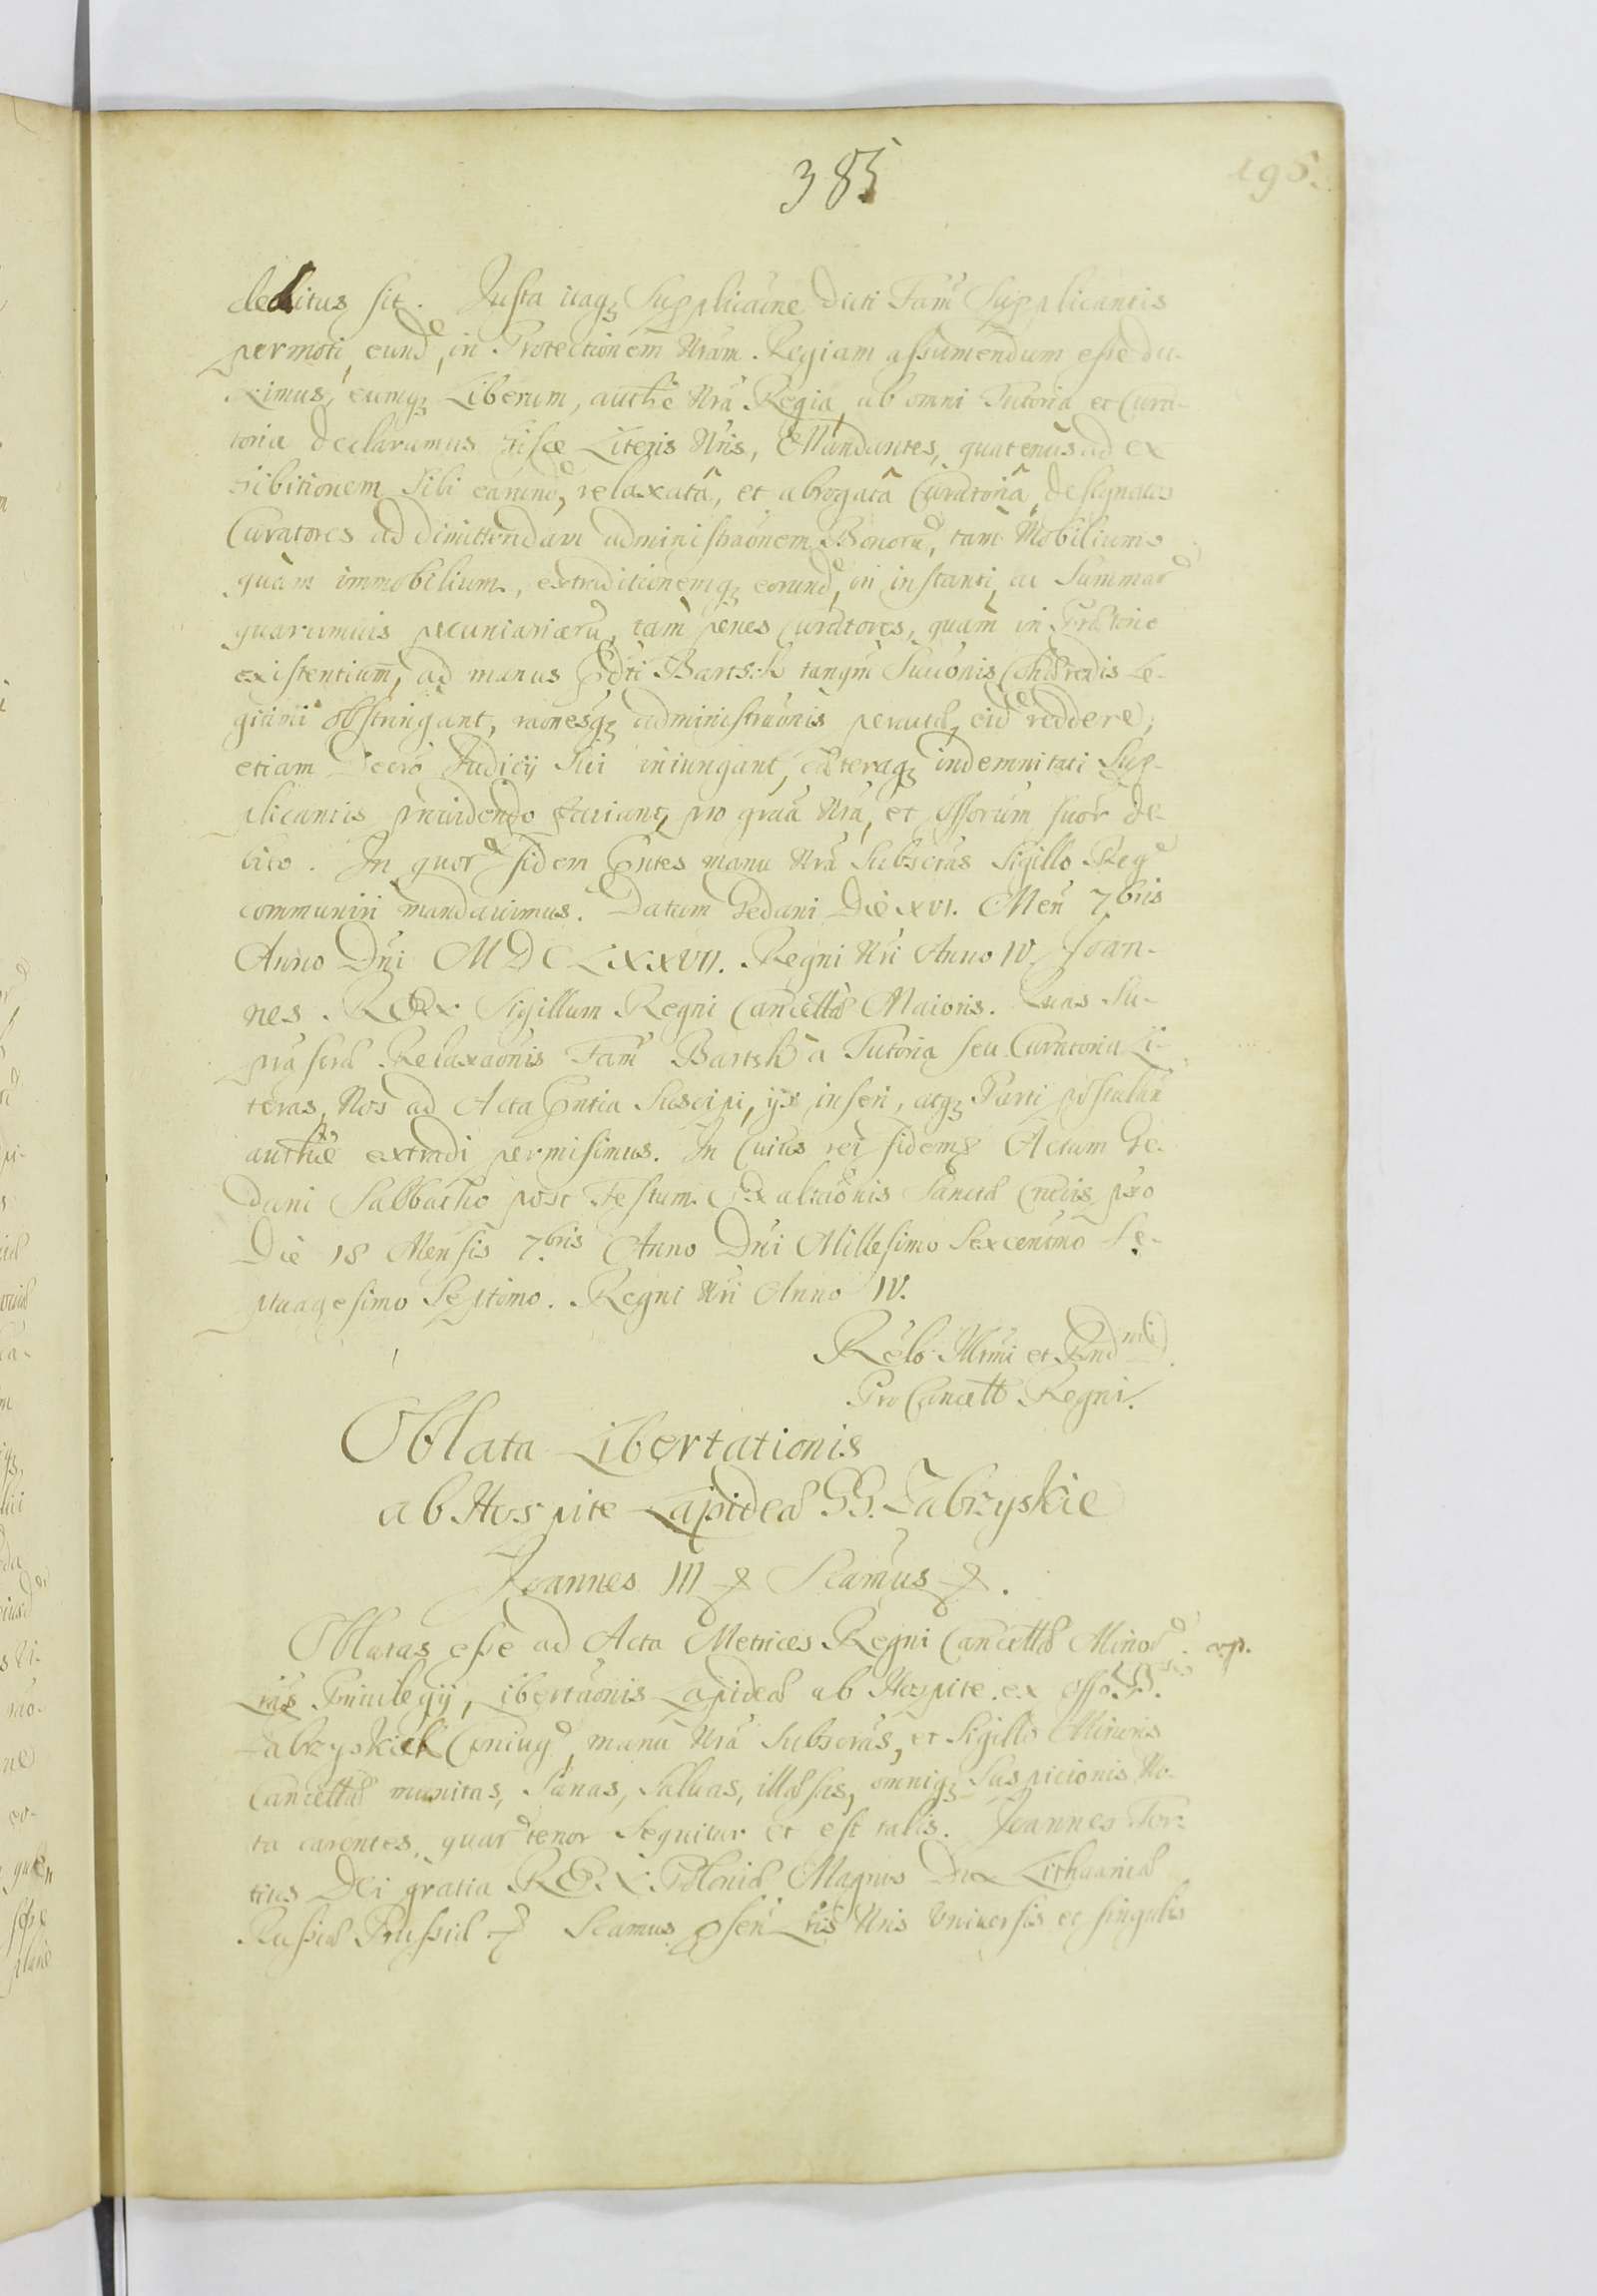 385
195.
debitus sit. Justa itaq₃ Supplicaōne Dicti Fam̃ Supplicantis
permoti, eundᵉ, in Protectionem Nrãm Regiam assumendum esse du-
ximus, eumq₃ Liberum, authẽ Nrã Regia, ab omni Tutoria et Cura-
toria declaramus hisce Literis Nris, Mandantes, quatenus ad ex
hibitionem Sibi earundᵉ, relaxatâ, et abrogatâ Curatoriâ, designatos
Curatores ad dimittendam administraõnem Bonorũ, tam Mobilium
quàm immobilium, extraditionemq₃ eorundᵉ, in instanti, ac Summar̃
quarumuis pecuniariarũ, tàm penes Curatores, quàm in Prætorio
existentium, ad manus Pdti Bartsch tanqm̃ Suuonis Cohæredis Le-
gitimi obstringant, raõnesq₃ administraõnis peractæ, eidᵉ reddere,
etiam Decrõ Judicij Sui iniungant, cæteraq₃ indemnitati Sup-
plicantis prouidendo faciant, pro grãa Nrã, et Offorum suor̃ de-
bito. In quor̃ fidem Pntes manu Nrã Subscras Sigillo Regᵉ
communiri mandauimus. Datum Gedani Die XVI. Men̄ 7bris
Anno Dni MDCLXXVII. Regni Nri Anno IV. Joan-
nes REX. Sigillum Regni Cancellæ Maioris. Quas Su-
pra scrãs Relaxaõnis Fam̃ Bartsch à Tutoria seu Curatoria Li-
teras, Nos ad Acta Pntia Suscipi, ijsq₃ inseri, atq₃ Parti postulan̄
authẽ extradi permisimus. In Cuius rei fidem₃ Actum Ge-
dani Sabbatho post Festum Exaltaõnis Sanctæ Crucis pro
Die 18 Mensis 7bris Anno Dni Millesimo Sexcentmõ Se-
ptuagesimo Septimo. Regni Nri Anno IV.
Relõ Illmi et Rndmi
Pro Cancell Regni.
Oblata Libertationis
ab Hospite Lapideæ GG. Zabrzyskie
Joannes III & Scamus &.
Oblatas esse ad Acta Metrices Regni Cancellæ Minor̃ exp.
Lrãs Priuilegij, Libertaõnis Lapideæ ab Hospite ex offo GG.
Zabrzyskich Coniugᵉ, manu Nrã Subscrãs, et Sigillo Minoris
Cancellæ munitas, Sanas, Saluas, illæsas, omniq₃ Suspicionis No-
ta carentes, quar̃ tenor Sequitur et est talis. Joannes Ter-
tius Dei gratia REX Poloniæ Magnus Dux Lithuaniæ
Russiæ Prussiæ & Scamus psen̄ Lris Nris Vniuersis et singulis